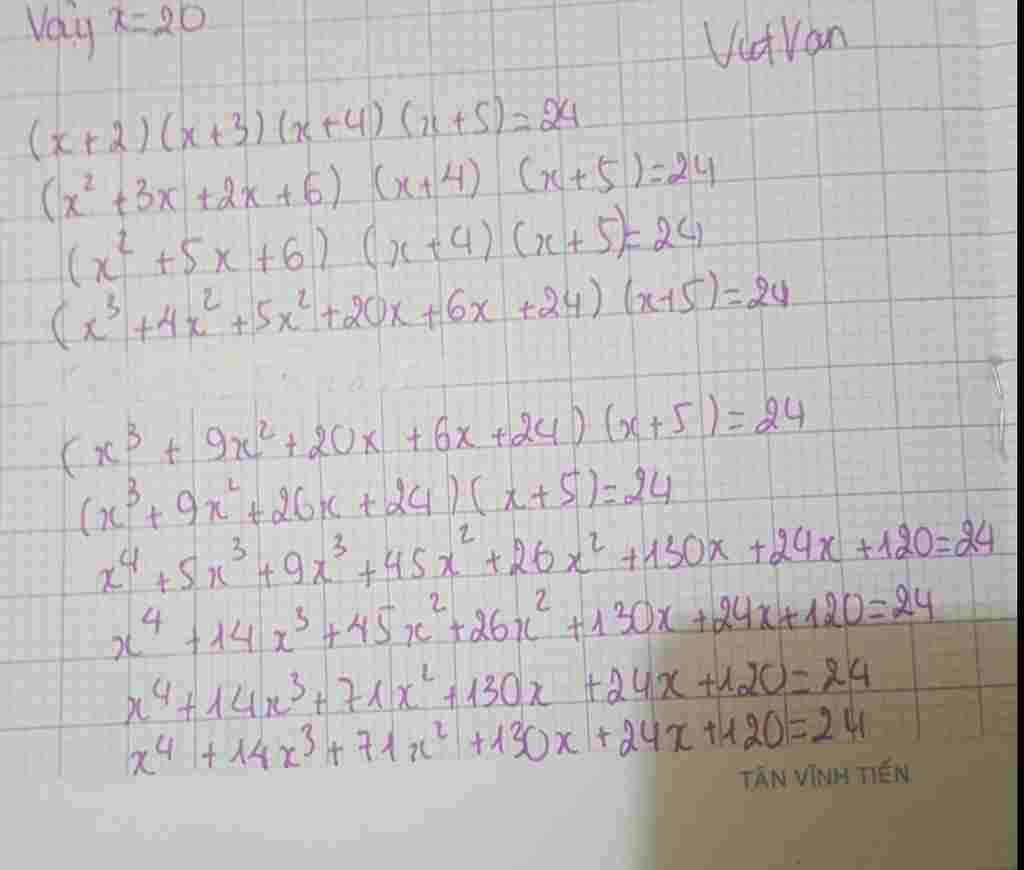 Vậy x=20
Viet Van
(x+2)(x+3)(x+4)(x+5)=24
(x²+3x+2x+6) (x+4) (x+5)=24
(x²+5x+6) (x+4)(x+5)=24
(x³+4x²+5x²+20x+6x+24)(x+5)=24
(x³+9x²+20x+6x+24)(x+5)=24
(x³+9x²+26x+24)(x+5)=24
x⁴+5x³+9x³+45x²+26x²+130x+24x+120=24
x⁴+14x³+45x²+26x²+130x+24x+120=24
x⁴+14x³+71x²+130x+24x+120=24
x⁴+14x³+71x²+130x+24x+120=24
TÂN VĨNH TIẾN